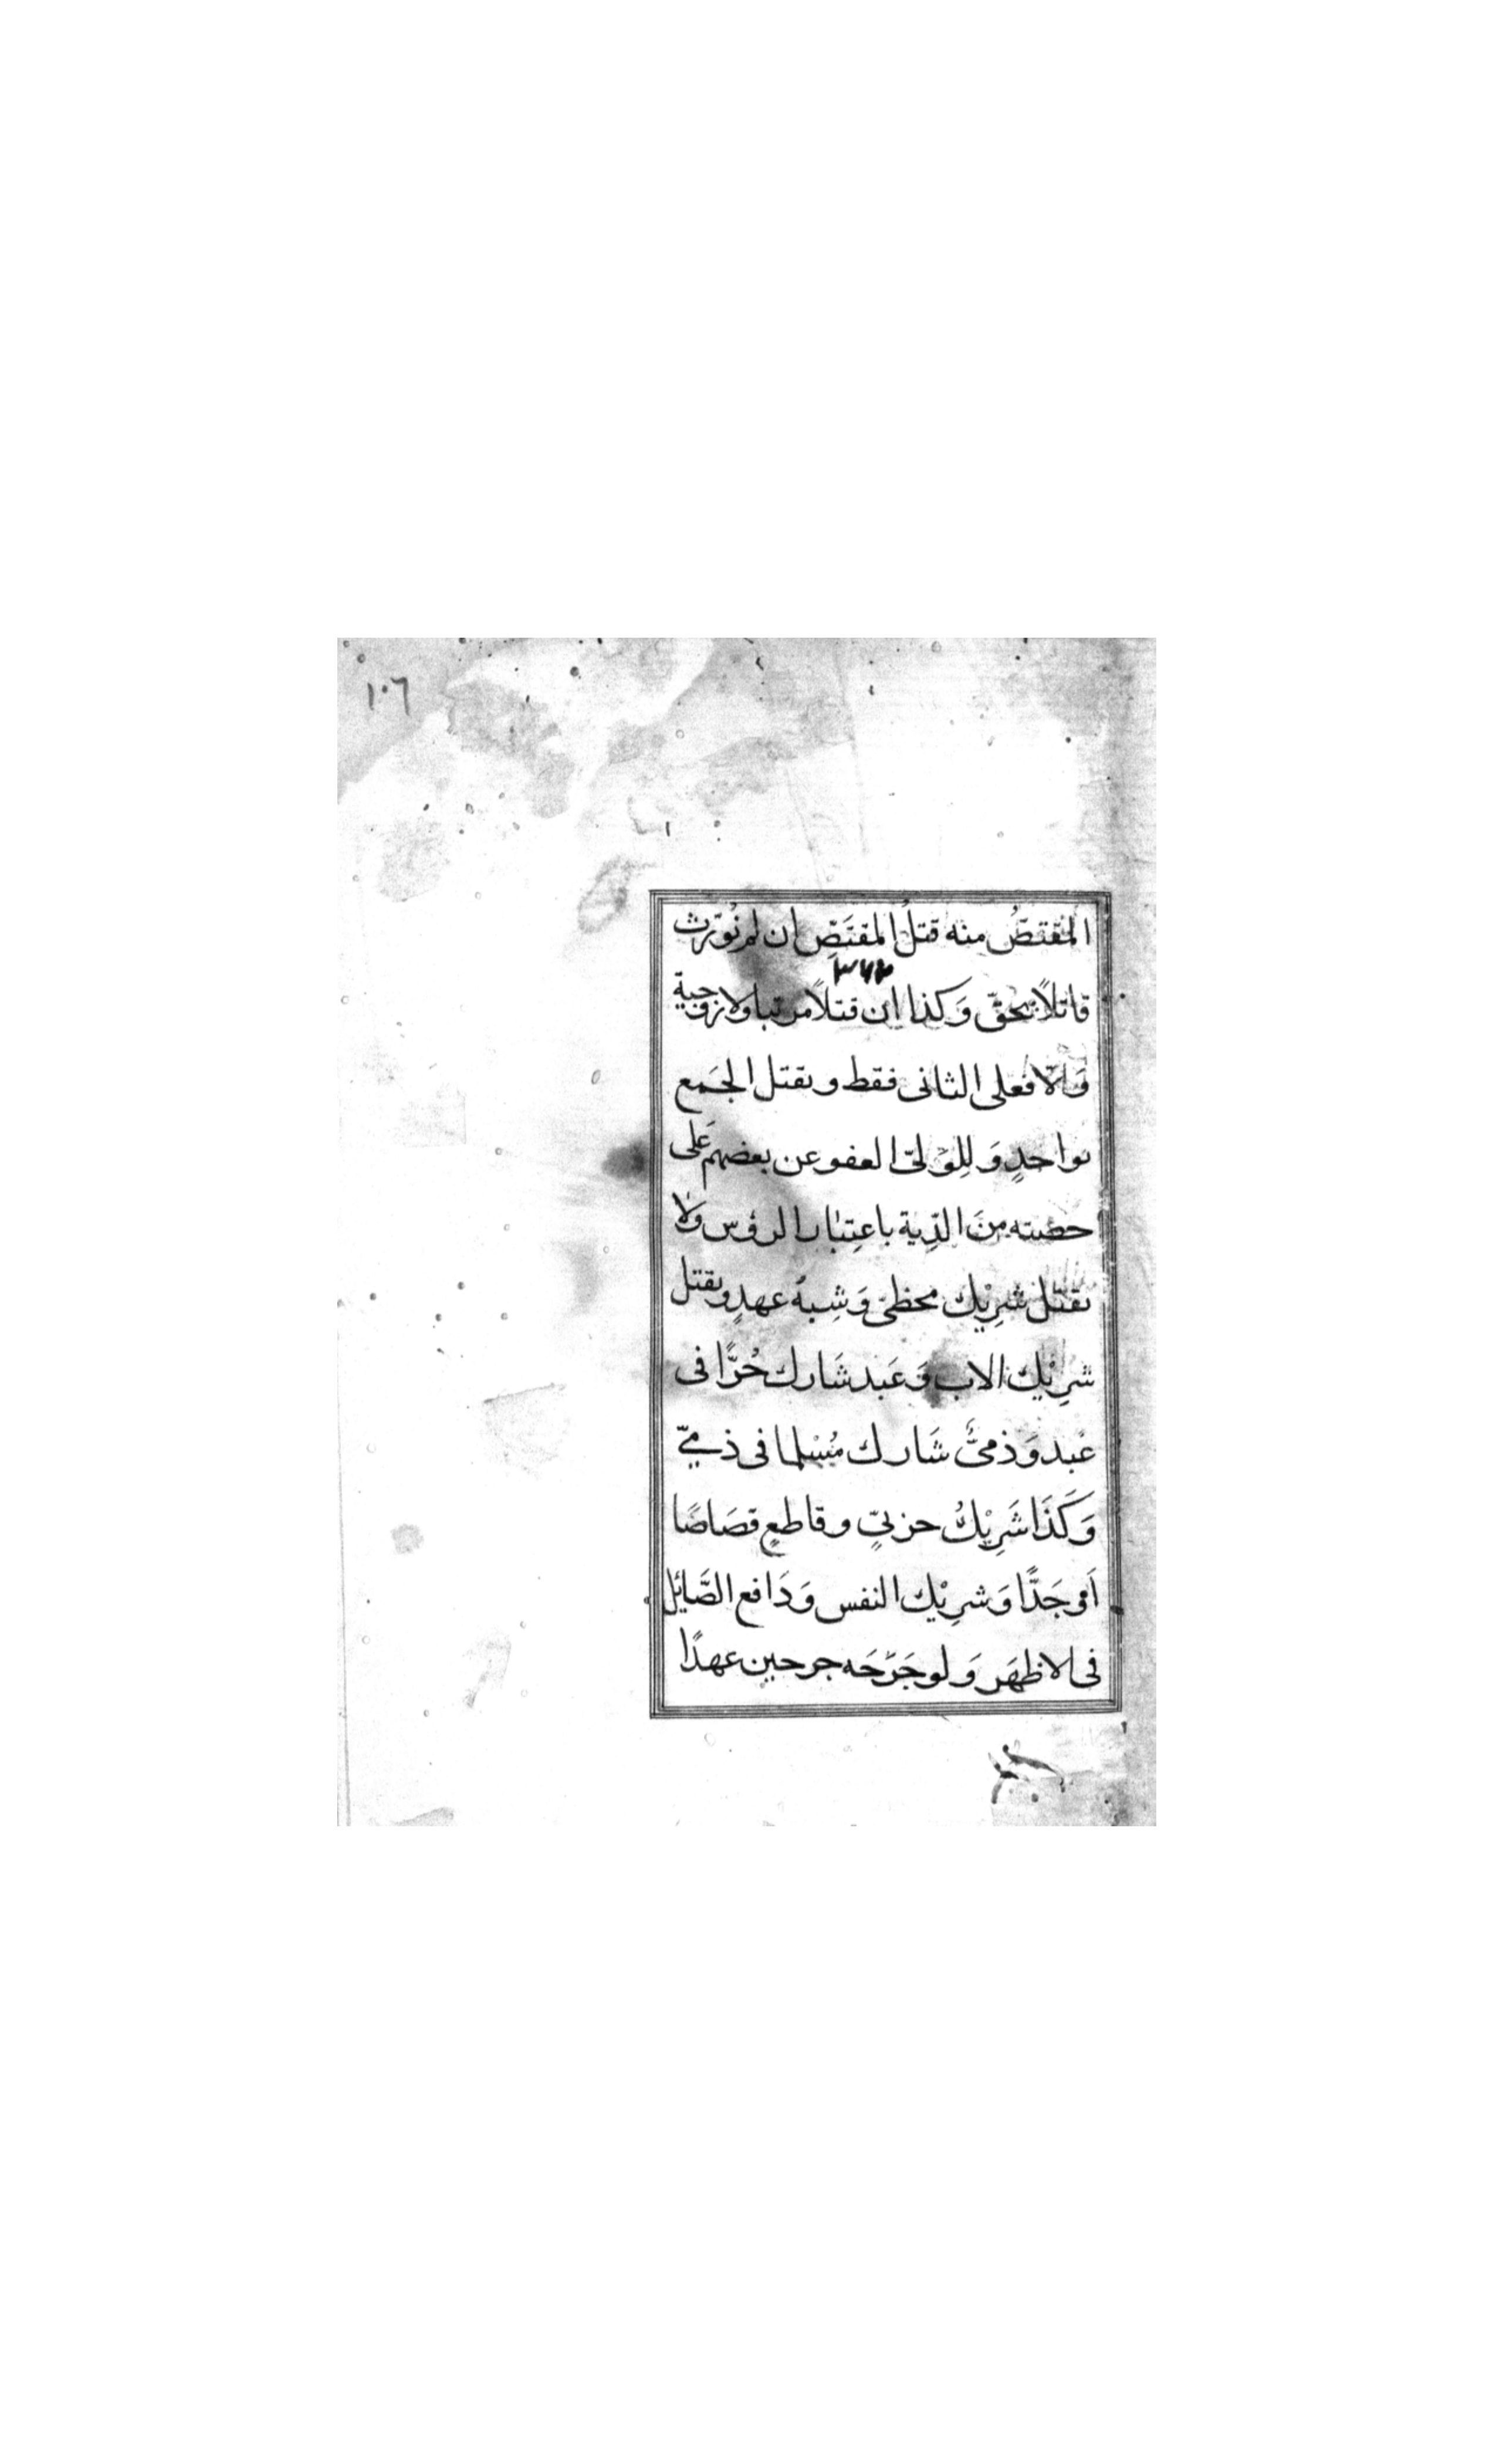 ١٠٦
المقتصُّ منه قتلُ المقتَصِّ ان لم نُوَرِّث
قاتلاً بحقّ وَكذا ان قتلاً مرتبا ولا زوجية
وَالّا فعلى الثانى فقط ويقتل الجَمع
بواحدٍ وَلِلوَلىّ العفو عن بعضهم عَلى
حصّته منَ الدِّية باعتِبَار الرؤس ولَا
يقتل شَرِيْك مخطىّ وَشِبهُ عمدٍ ويقتل
شَرِيْك الاب وَعَبد شَارك حُرًّا فى
عَبد وَذمىٌّ شَارك مُسْلما فى ذمىّ
وَكَذَا شَرِيْكُ حربىٍّ وقاطعٍ قصَاصًا
اَو حَدًّا وَشرِيْك النفس وَدَافع الصَّايَل
فى الاظهَر وَلو جَرَحَه جرحين عمدًا